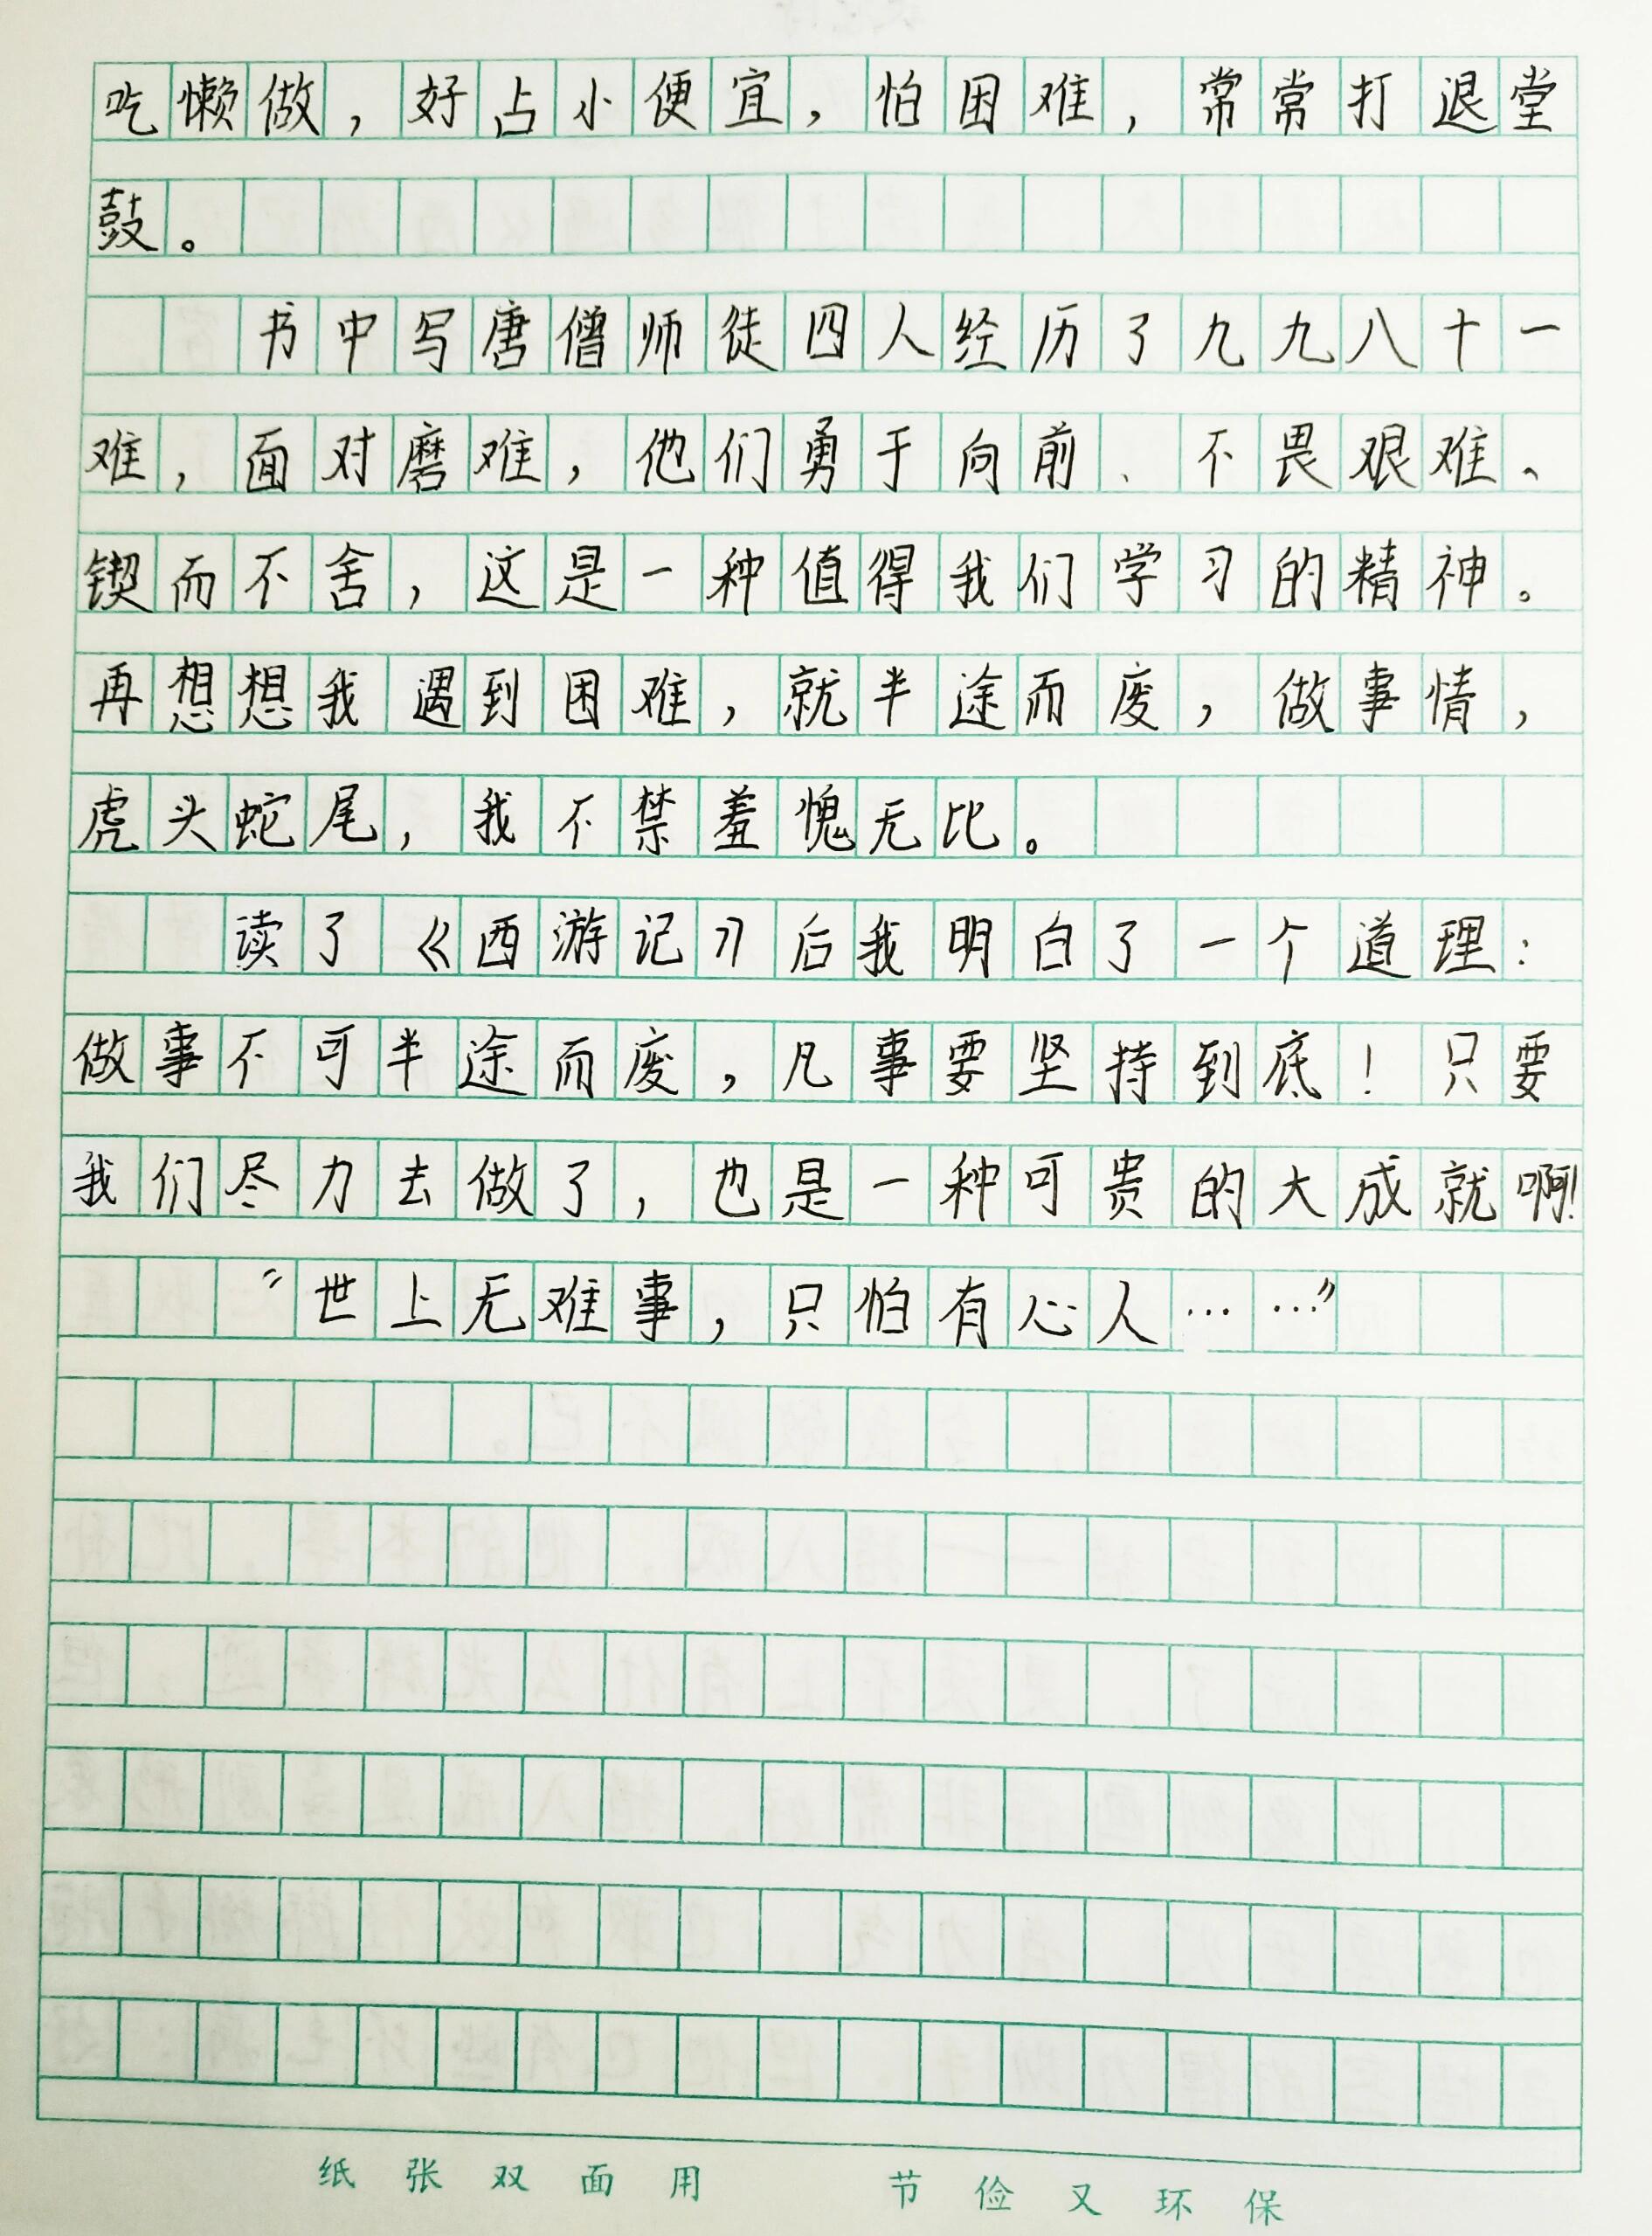 吃懒做，好占小便宜，怕困难，常常打退堂
鼓。
书中写唐僧师徒四人经历了九九八十一
难，面对磨难，他们勇于向前、不畏艰难、
锲而不舍，这是一种值得我们学习的精神。
再想想我遇到困难，就半途而废，做事情，
虎头蛇尾，我不禁羞愧无比。
读了《西游记》后我明白了一个道理：
做事不可半途而废，凡事要坚持到底！只要
我们尽力去做了，也是一种可贵的大成就啊！
“世上无难事，只怕有心人……”
纸张双面用 节俭又环保